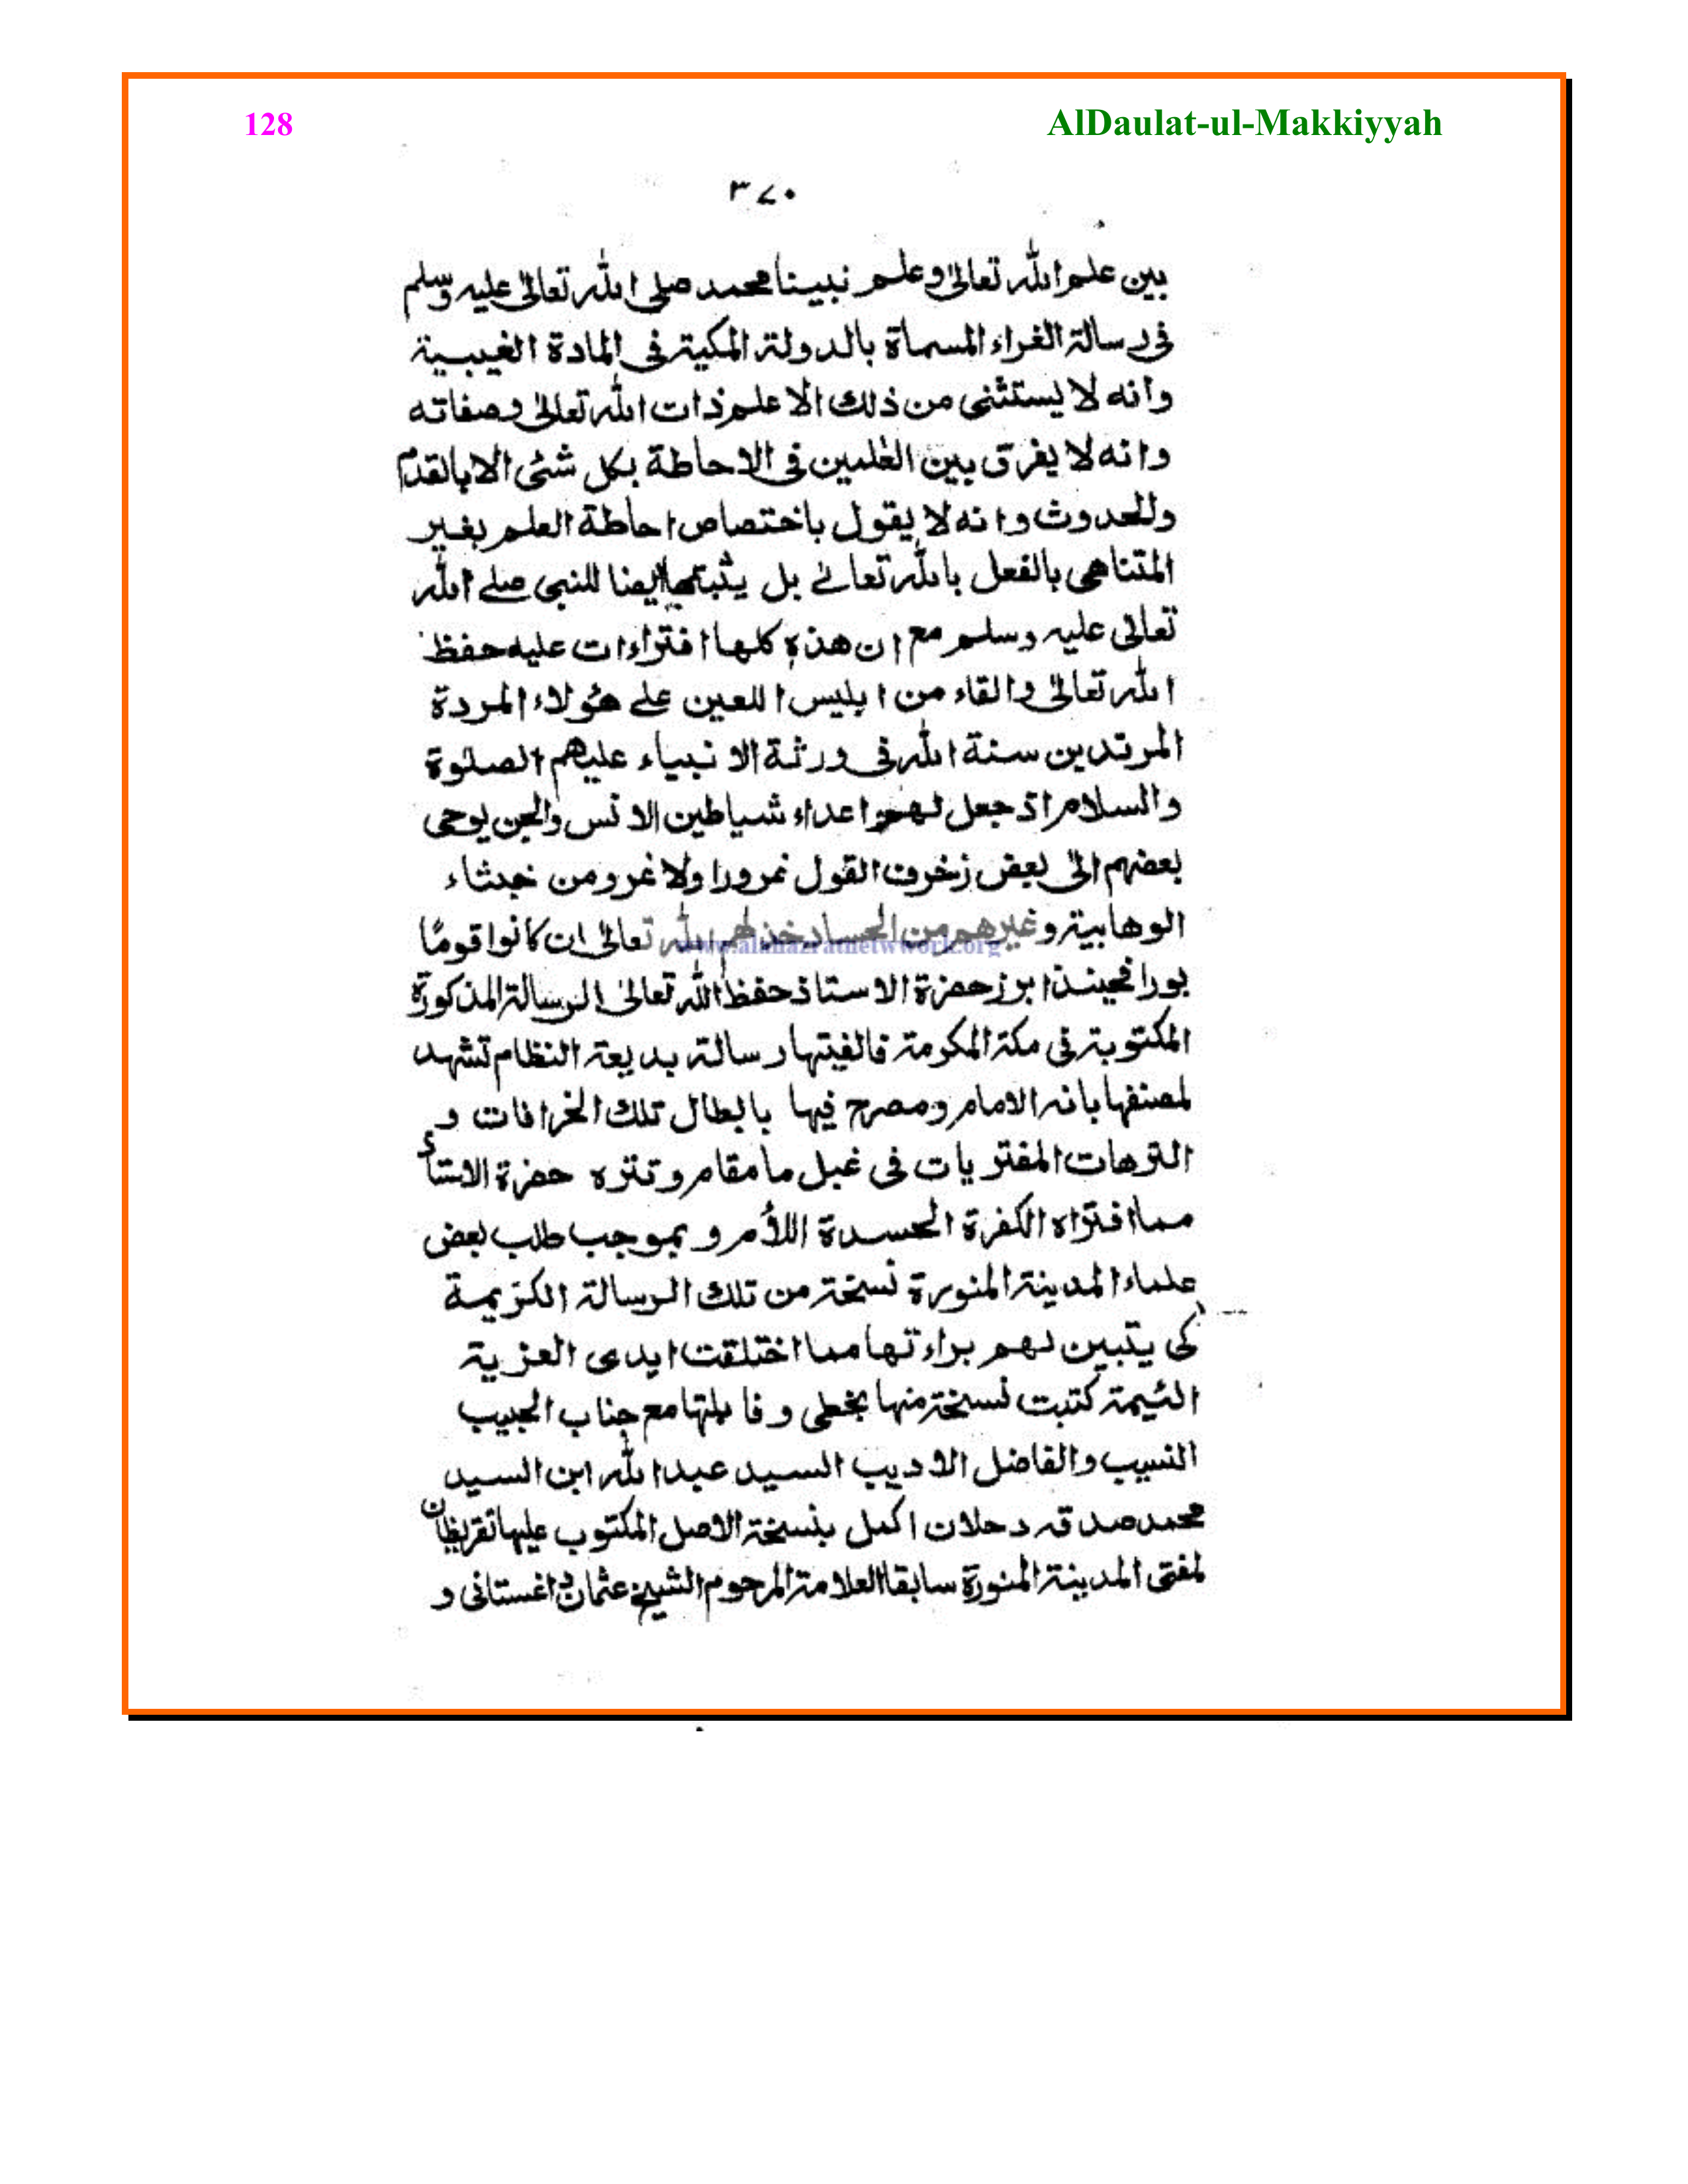 128 AlDaulat-ul-Makkiyyah
٣٧٠
بين علم الله تعالىٰ وعلم نبينا محمد صلى الله تعالىٰ عليه وسلم
فى رسالة الغراء المسماة بالدولة المكية فى المادة الغيبية
وانه لا يستثنى من ذلك الا علم ذات الله تعالىٰ وصفاته
وانه لا يفرق بين العلمين فى الاحاطة بكل شئى الا بالقدم
وللحدوث وانه لا يقول باختصاص احاطة العلم بغير
المتناهى بالفعل بالله تعالےٰ بل يثبتها ايضا للنبى صلے الله
تعالى عليه وسلم مع ان هذه كلها افتراءات عليه حفظ
الله تعالىٰ والقاء من ابليس اللعين علے هؤلاء المردة
المرتدين سنة الله فى ورثة الانبياء عليهم الصلوٰة
والسلام اذ جعل لهم اعداء شياطين الانس والجن يوحى
بعضهم الىٰ بعض زخرف القول غرورا ولا غرو من خبثاء
الوهابية وغيرهم من الحساد خذلهم الله تعالىٰ ان كانوا قومًا
www.alahazratnetwork.org
بورا فحينئذ ابرز حضرة الاستاذ حفظ الله تعالىٰ الرسالة المذكورة
المكتوبة فى مكة المكرمة فالفيتها رسالة بديعة النظام تشهد
لمصنفها بانه الامام ومصرح فيها بابطال تلك الخرافات و
الترهات المفتريات فى غبل ما مقام وتنزه حضرة الاستاذ
مما افتراه الكفرة الحسدة اللأم وبموجب طلب بعض
علماء المدينة المنورة نسخة من تلك الرسالة الكريمة
كى يتبين لهم براءتها مما اختلقت ايدى العزية
الئيمة كتبت نسخة منها بخطى وقابلتها مع جناب الحبيب
النسيب والفاضل الاديب السيد عبد الله ابن السيد
محمد صدقه دحلان اكمل بنسخة الاصل المكتوب عليها تقريظان
لمفتى المدينة المنورة سابقا العلامة المرحوم الشيخ عثمان داغستانى و